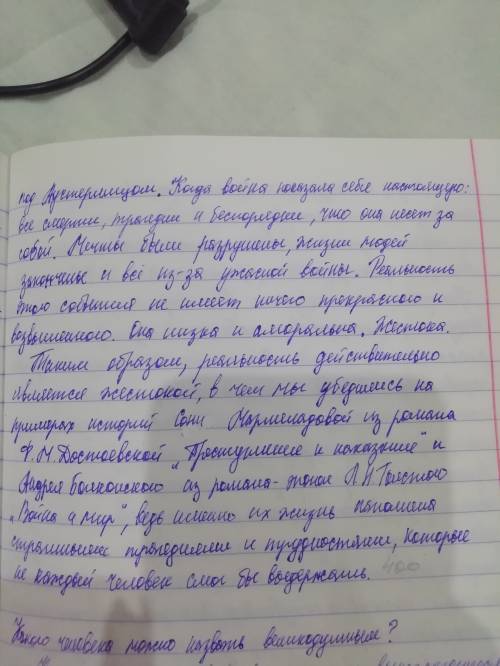 под Аустерлицом. Когда война показала себя настоящую:
все смерти, трагедии и беспорядки, что она несет за
собой. Мечты были разрушены, жизни людей
закончены и всё из-за ужасной войны. Реальность
этого события не имеет ничего прекрасного и
возвышенного. Она низка и аморальна. Жестока.
Таким образом, реальность действительно
является жестокой, в чем мы убедились на
примерах историй Сони Мармеладовой из романа
Ф.М.Достоевской „Преступление и наказание" и
Андрея Болконского из романа-эпопеи Л.Н.Толстого
„Война и мир", ведь именно их жизнь наполнена
страшными трагедиями и трудностями, которые
не каждый человек смог бы выдержать. 400
Какого человека можно назвать великодушным?